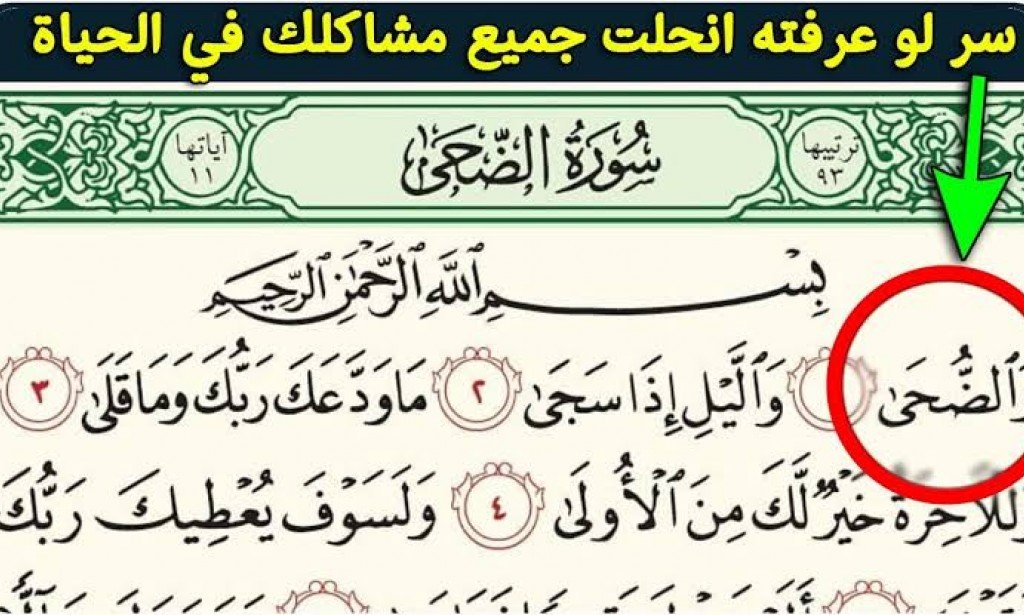 سر لو عرفته انحلت جميع مشاكلك في الحياة
ترتيبها ٩٣
سُورَةُ الضُّحَىٰ
آياتها ١١
بِسْمِ اللَّهِ الرَّحْمَٰنِ الرَّحِيمِ
وَٱلضُّحَىٰ وَٱلَّيْلِ إِذَا سَجَىٰ ٢ مَا وَدَّعَكَ رَبُّكَ وَمَا قَلَىٰ ٣
وَلَلْآخِرَةُ خَيْرٌ لَّكَ مِنَ ٱلْأُولَىٰ ٤ وَلَسَوْفَ يُعْطِيكَ رَبُّكَ